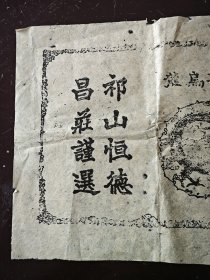 祁山恒德
昌莊謹選